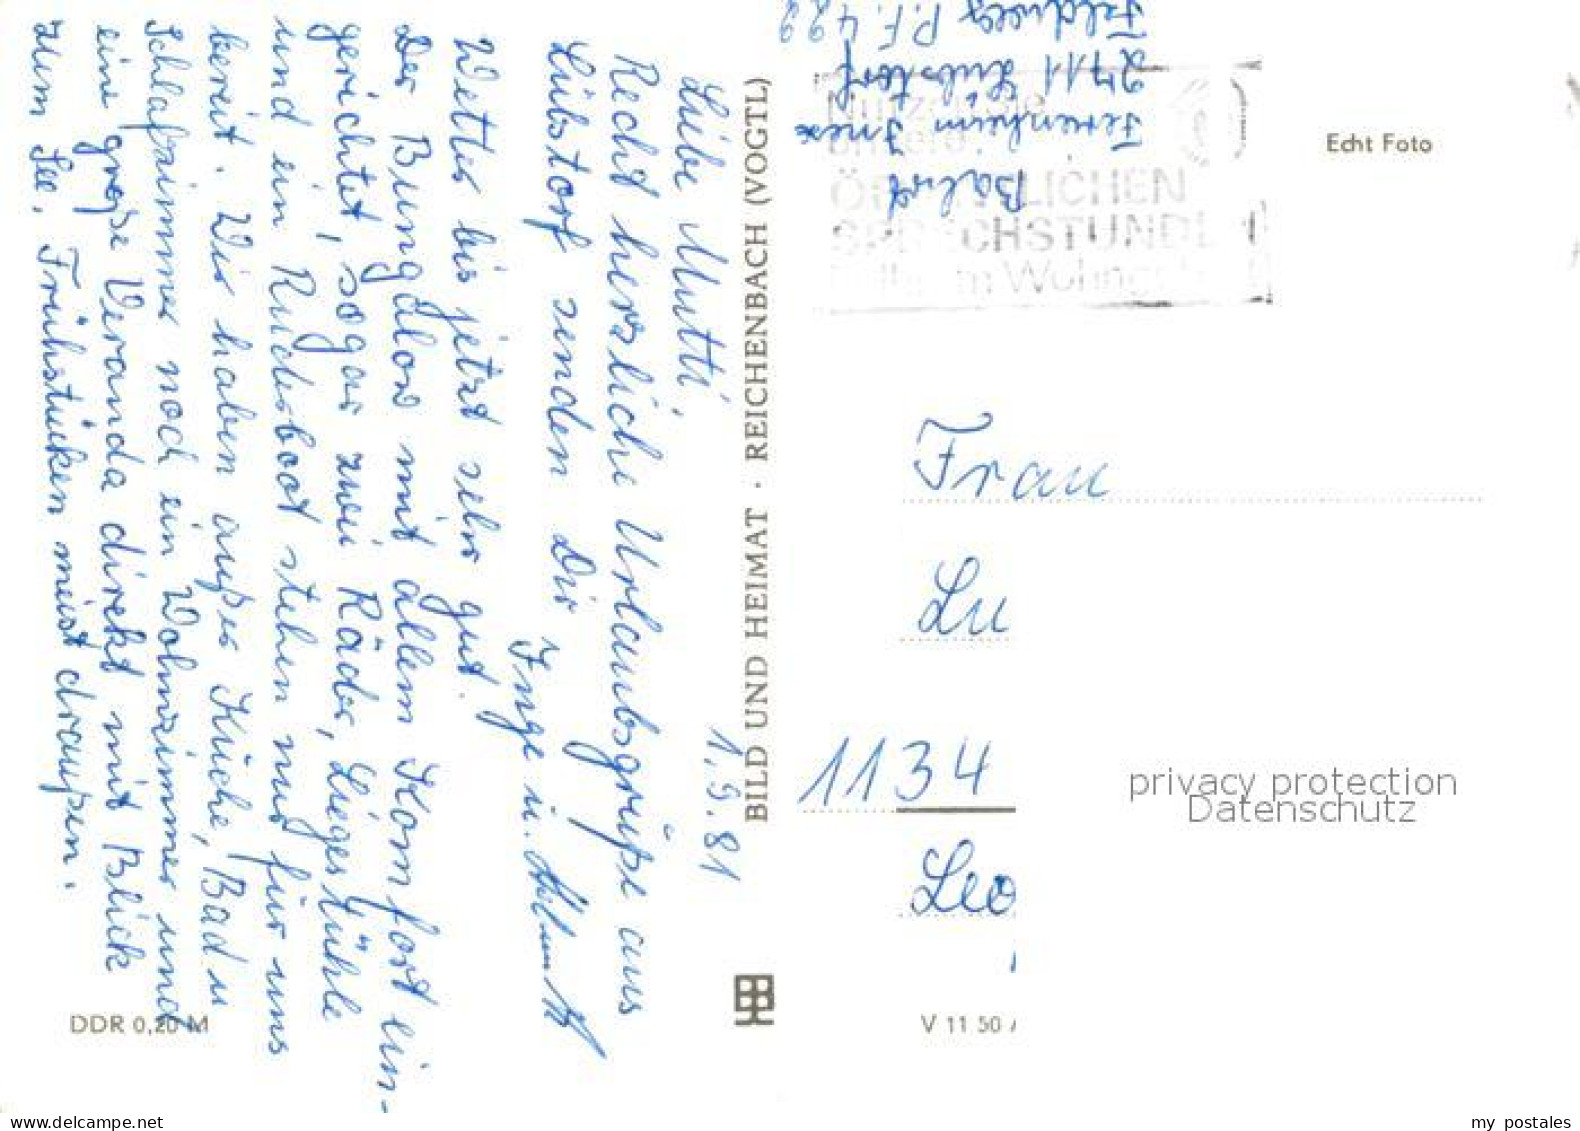 1.9.81
Liebe Mutti,
Recht herzliche Urlaubsgrüße aus
Lübstorf senden Dir
Inge u.
Wetter bis jetzt sehr gut.
Der Bungalow mit allem Komfort ein-
gerichtet, sogar zwei Räder, Liegestühle
und ein Ruderboot stehen nur für uns
bereit. Wir haben außer Küche, Bad u
Schlafzimmer noch ein Wohnzimmer und
eine große Veranda direkt mit Blick
zum See. Frühstücken meist draußen.
BILD UND HEIMAT · REICHENBACH (VOGTL)
DDR 0,20 M
V 11 50
Echt Foto
Ferienheim
2711 Lübstorf
Feldweg P.F. 422
LICHEN
CHSTUND
m Wohng
Frau
Lu
1134
Leo
privacy protection
Datenschutz
www.delcampe.net
my_postales